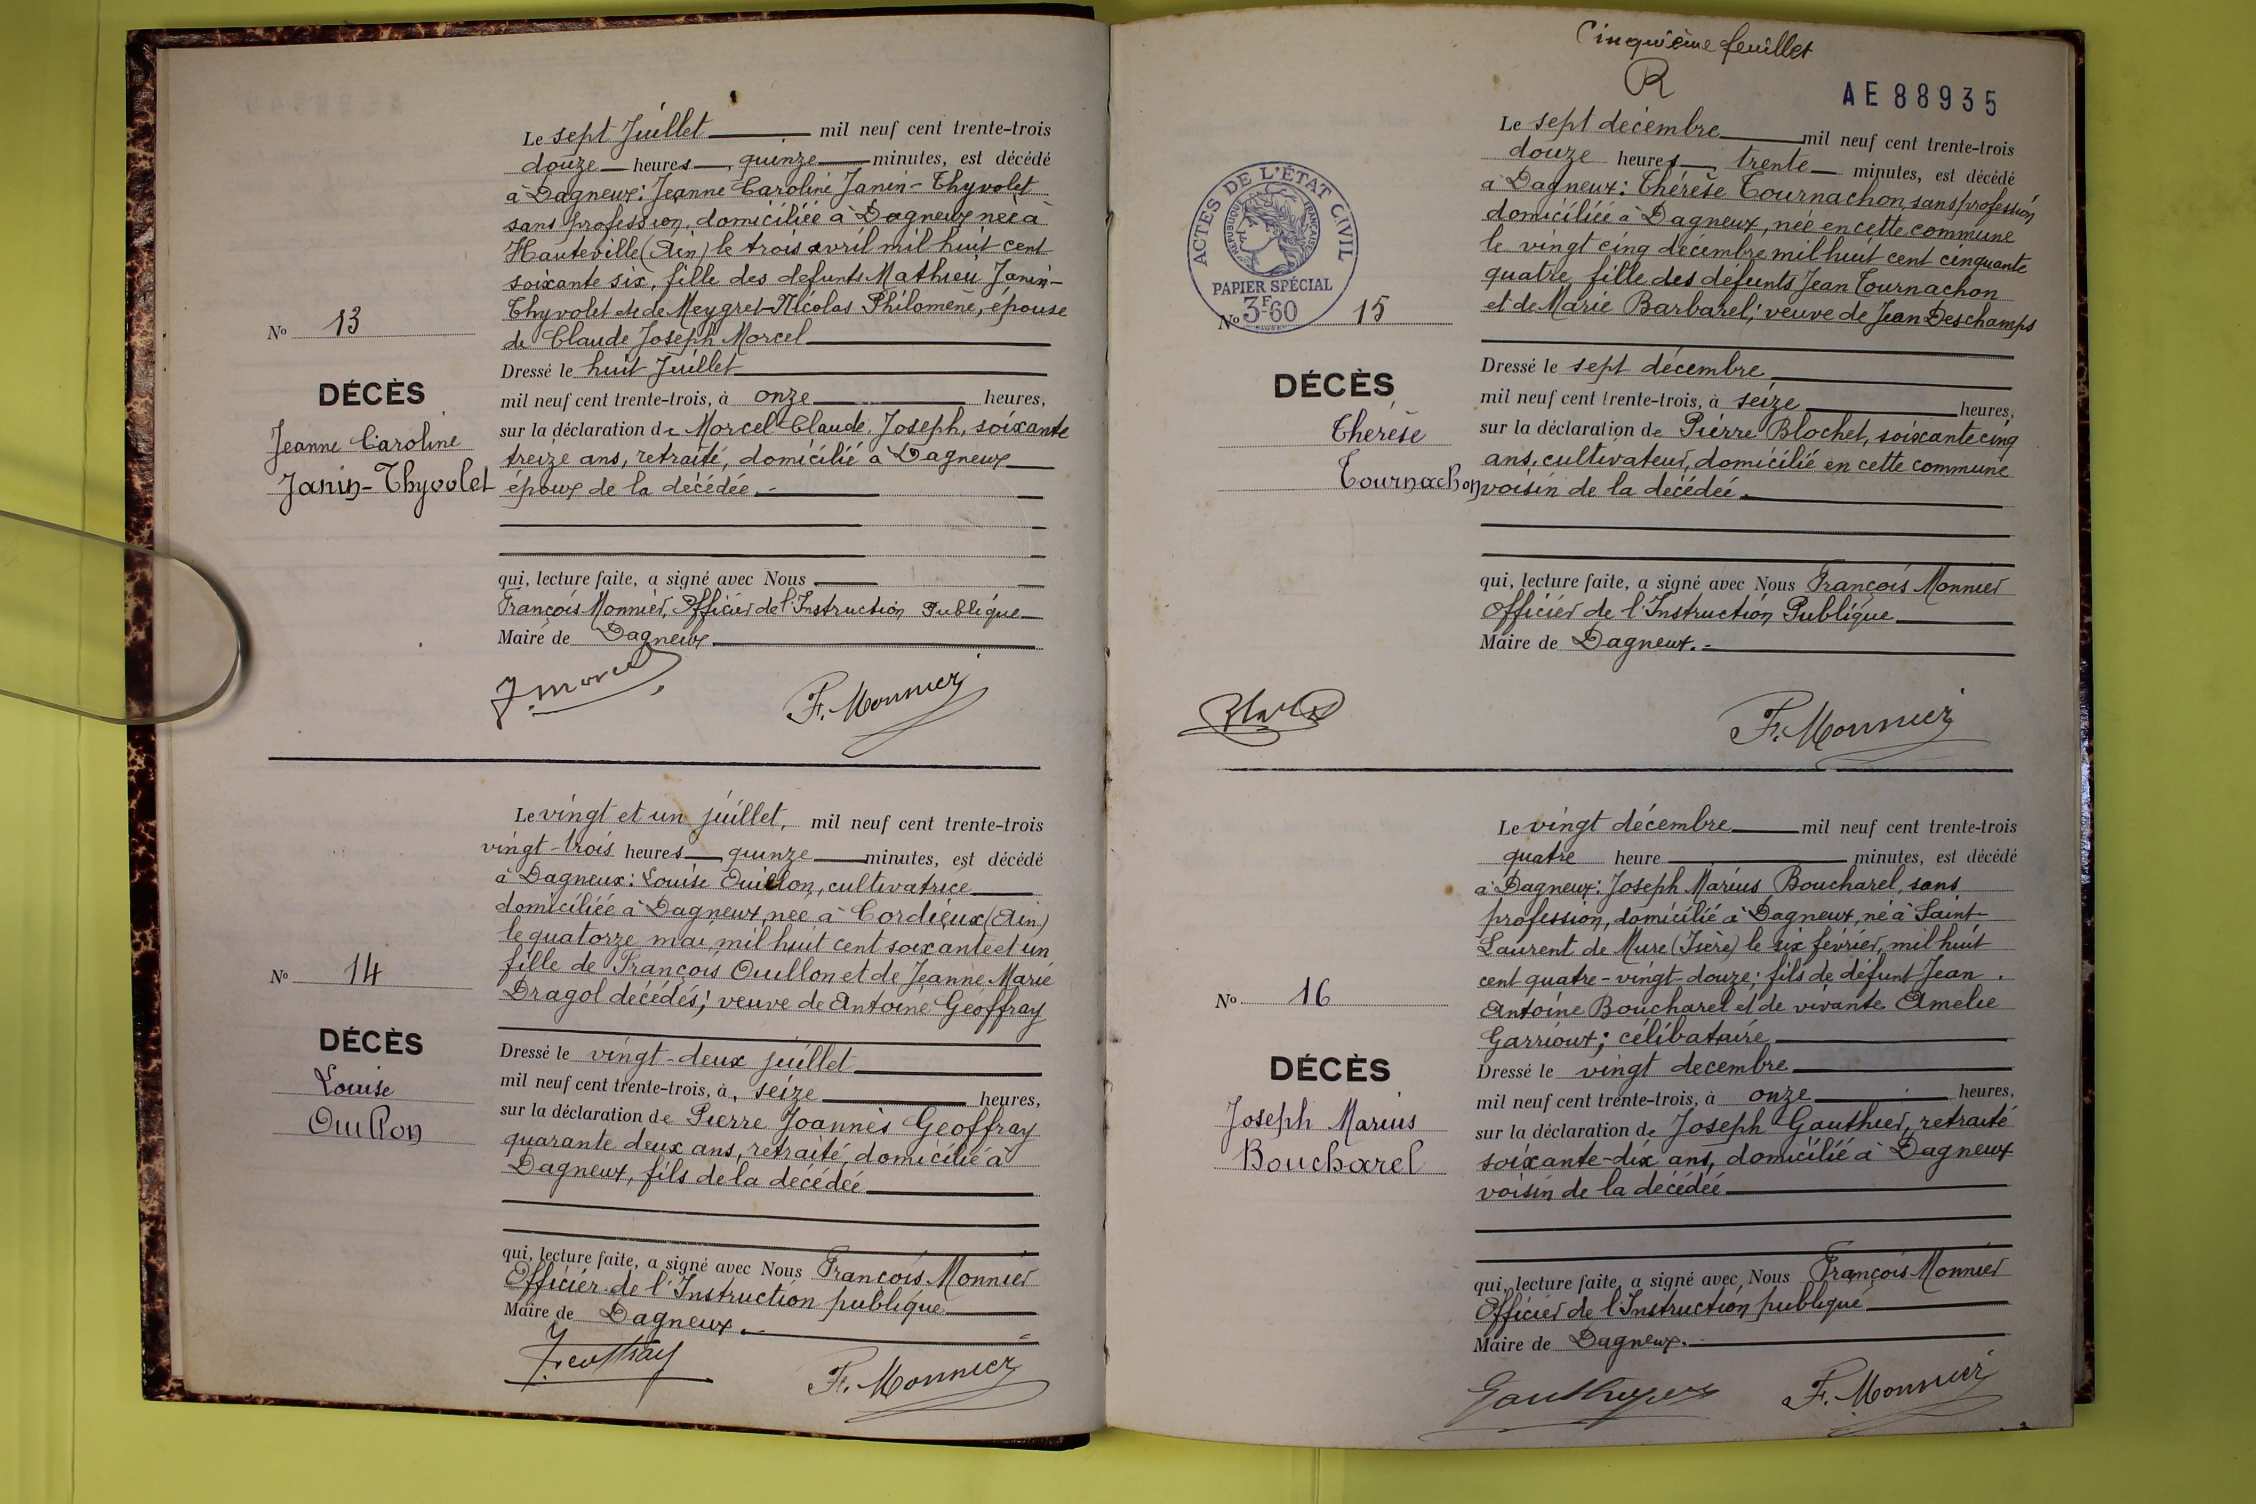 Le sept Juillet mil neuf cent trente-trois
douze heures, quinze minutes, est décédé
à Dagneux: Jeanne Caroline Janin-Thyvolet
sans profession, domiciliée à Dagneux née à
Hauteville (Ain) le trois avril mil huit cent
soixante six, fille des defunts Mathieu Janin-
Thyvolet et de Meygret-Nicolas Philomène, épouse
de Claude Joseph Morcel
No 13
DÉCÈS
Jeanne Caroline
Janin-Thyvolet
Dressé le huit Juillet
mil neuf cent trente-trois, à onze heures,
sur la déclaration de Morcel Claude Joseph, soixante
treize ans, retraité, domicilié à Dagneux
époux de la décédée.-
qui, lecture faite, a signé avec Nous
François Monnier, Officier de l'Instruction Publique
Maire de Dagneux
J. Morcel
F. Monnier
Le vingt et un juillet, mil neuf cent trente-trois
vingt-trois heures, quinze minutes, est décédé
à Dagneux: Louise Ouillon, cultivatrice
domiciliée à Dagneux, née à Cordieux (Ain)
le quatorze mai, mil huit cent soixante et un
fille de François Ouillon et de Jeanne Marie
Dragol décédés; veuve de Antoine Geoffray
No 14
DÉCÈS
Louise
Ouillon
Dressé le vingt-deux juillet
mil neuf cent trente-trois, à, seize heures,
sur la déclaration de Pierre Joannès Geoffray
quarante deux ans, retraité, domicilié à
Dagneux, fils de la décédée
qui, lecture faite, a signé avec Nous François Monnier
Officier de l'Instruction publique
Maire de Dagneux.-
Geoffray
F. Monnier
Cinquième feuillet
R
AE 88935
Le sept décembre mil neuf cent trente-trois
douze heures, trente minutes, est décédé
à Dagneux: Thérèse Tournachon, sans profession
domiciliée à Dagneux, née en cette commune
le vingt cinq décembre mil huit cent cinquante
quatre, fille des defunts Jean Tournachon
et de Marie Barbarel; veuve de Jean Deschamps
ACTES DE L'ÉTAT CIVIL
RÉPUBLIQUE FRANÇAISE
PAPIER SPÉCIAL
3F60
No 15
DÉCÈS
Thérèse
Tournachon
Dressé le sept décembre
mil neuf cent trente-trois, à seize heures,
sur la déclaration de Pierre Blochet, soixante cinq
ans, cultivateur, domicilié en cette commune
voisin de la décédée.
qui, lecture faite, a signé avec Nous François Monnier
Officier de l'Instruction Publique
Maire de Dagneux.-
F. Monnier
Le vingt décembre mil neuf cent trente-trois
quatre heure minutes, est décédé
à Dagneux: Joseph Marius Boucharel, sans
profession, domicilié à Dagneux, né à Saint-
Laurent de Mure (Isère) le six février, mil huit
cent quatre-vingt-douze; fils de défunt Jean
Antoine Boucharel et de vivante Amelie
Garrioux; célibataire
No 16
DÉCÈS
Joseph Marius
Boucharel
Dressé le vingt decembre
mil neuf cent trente-trois, à onze heures,
sur la déclaration de Joseph Gauthier, retraité
soixante-dix ans, domicilié à Dagneux
voisin de la décédée
qui, lecture faite, a signé avec Nous François Monnier
Officier de l'Instruction publique
Maire de Dagneux.
F. Monnier